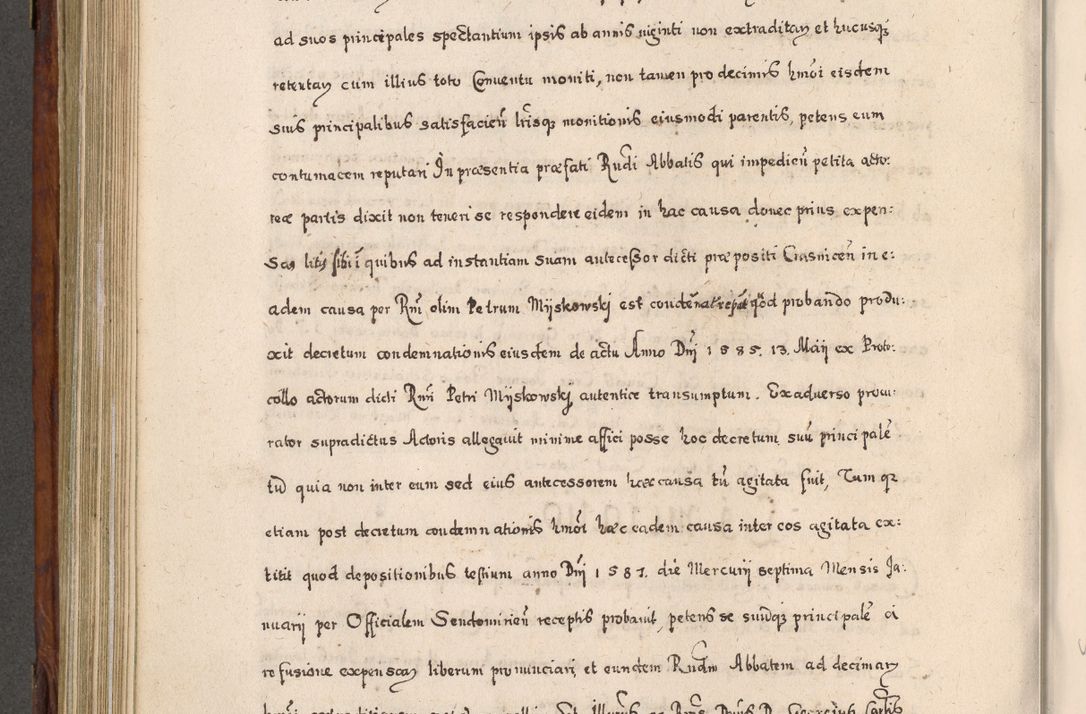 ad suos principales spectantium ipsis ab annis viginti non extraditaꝝ et hucusqꝫ
retentaꝝ cum illius toto Conventu moniti, non tamen pro decimis hmōi eisdem
suis principalibus satisfacien̄ lrīsqꝫ monitionis eiusmodi parentis, petens eum
contumacem reputari In præsentia præfati Rn̄di Abbatis qui impedien̄ petita acto:
reæ partis dixit non teneri se respondere eidem in hac causa donec prius expen:
sas litis sibi ī quibus ad instantiam suam antecessor dicti præpositi Ciasnicen̄ in e:
adem causa per Rm̄ olim Petrum Mÿskowskj est condēnat qōd probando produ:
xit decretum condemnationis eiusdem de actu Anno Dn̄j 1585. 13. Maij ex Proto:
collo actorum dicti Rm̄i Petri Mÿskowskj autentice transumptum. Ex adverso procu:
rator supradictus Actoris allegavit minime affici posse hoc decretum suū principalē
tū quia non inter eum sed eius antecessorem hæc causa tū agitata fuit, Tum qꝫ
etiam post decretum condemnationis hmōi hæc eadem causa inter eos agitata ex:
titit quod depositionibus testium anno Dn̄j 1587. die Mercurij septima Mensis Ja:
nuarij per Officialem Sendomirien̄ receptis probavit, petens se suūqꝫ principalē a
refusione expensaꝝ liberum pronunciari, et eundem Rn̄dm Abbatem ad decimaꝝ